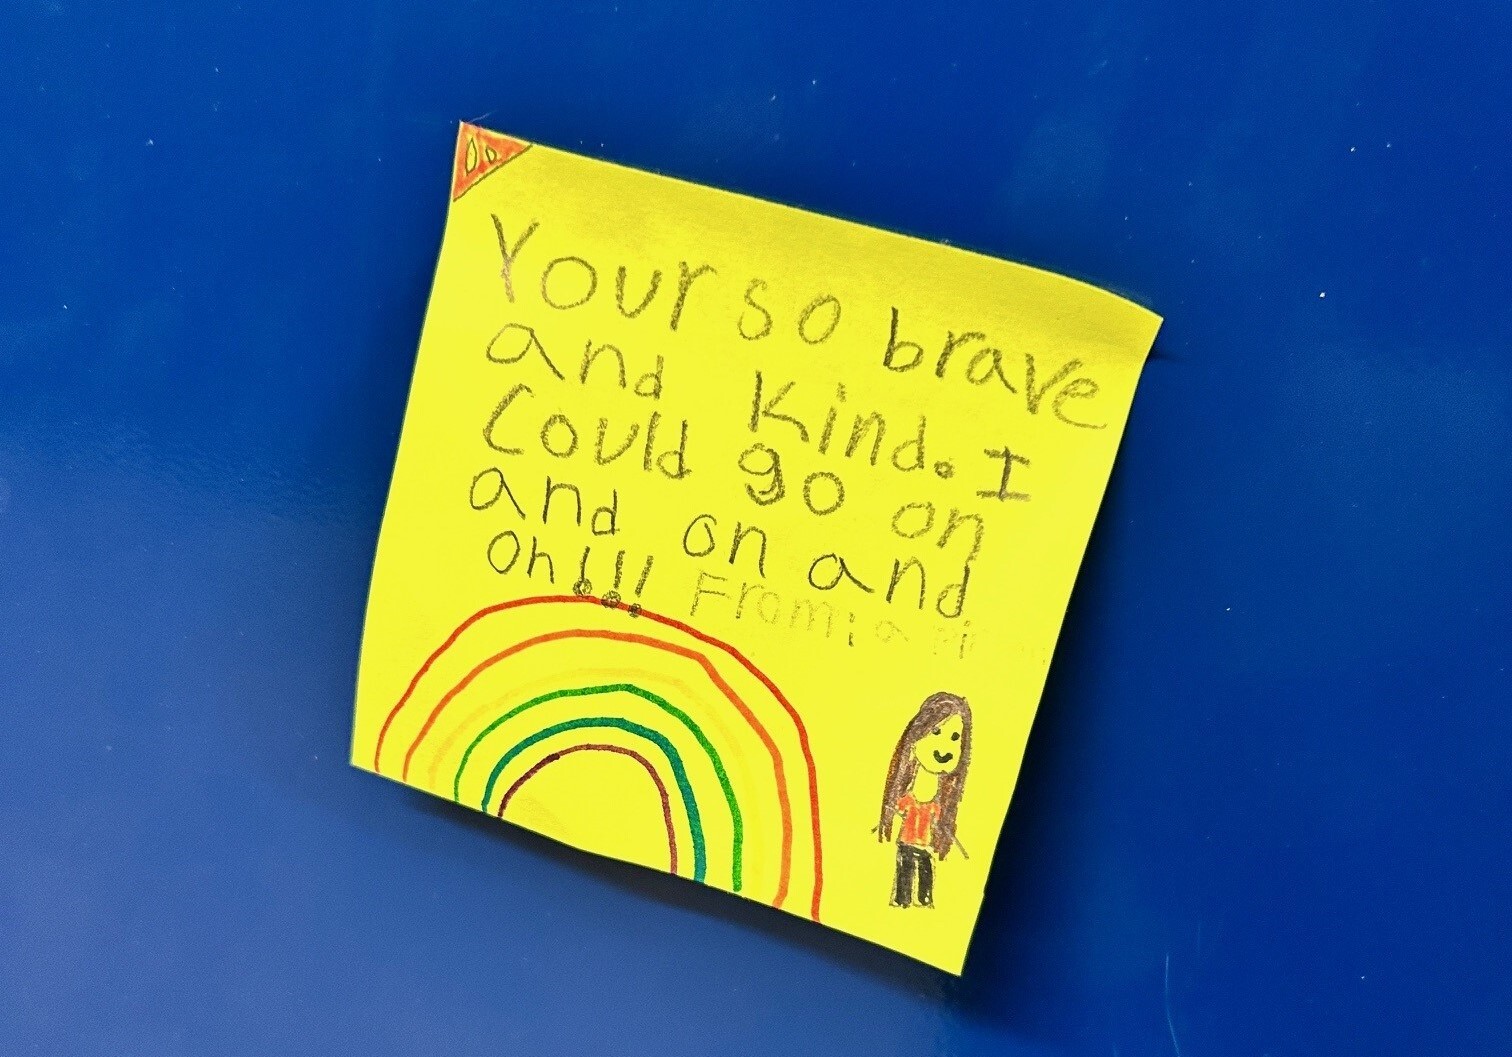 Your so brave
and kind. I
Could go on
and on and
on!!! From: a